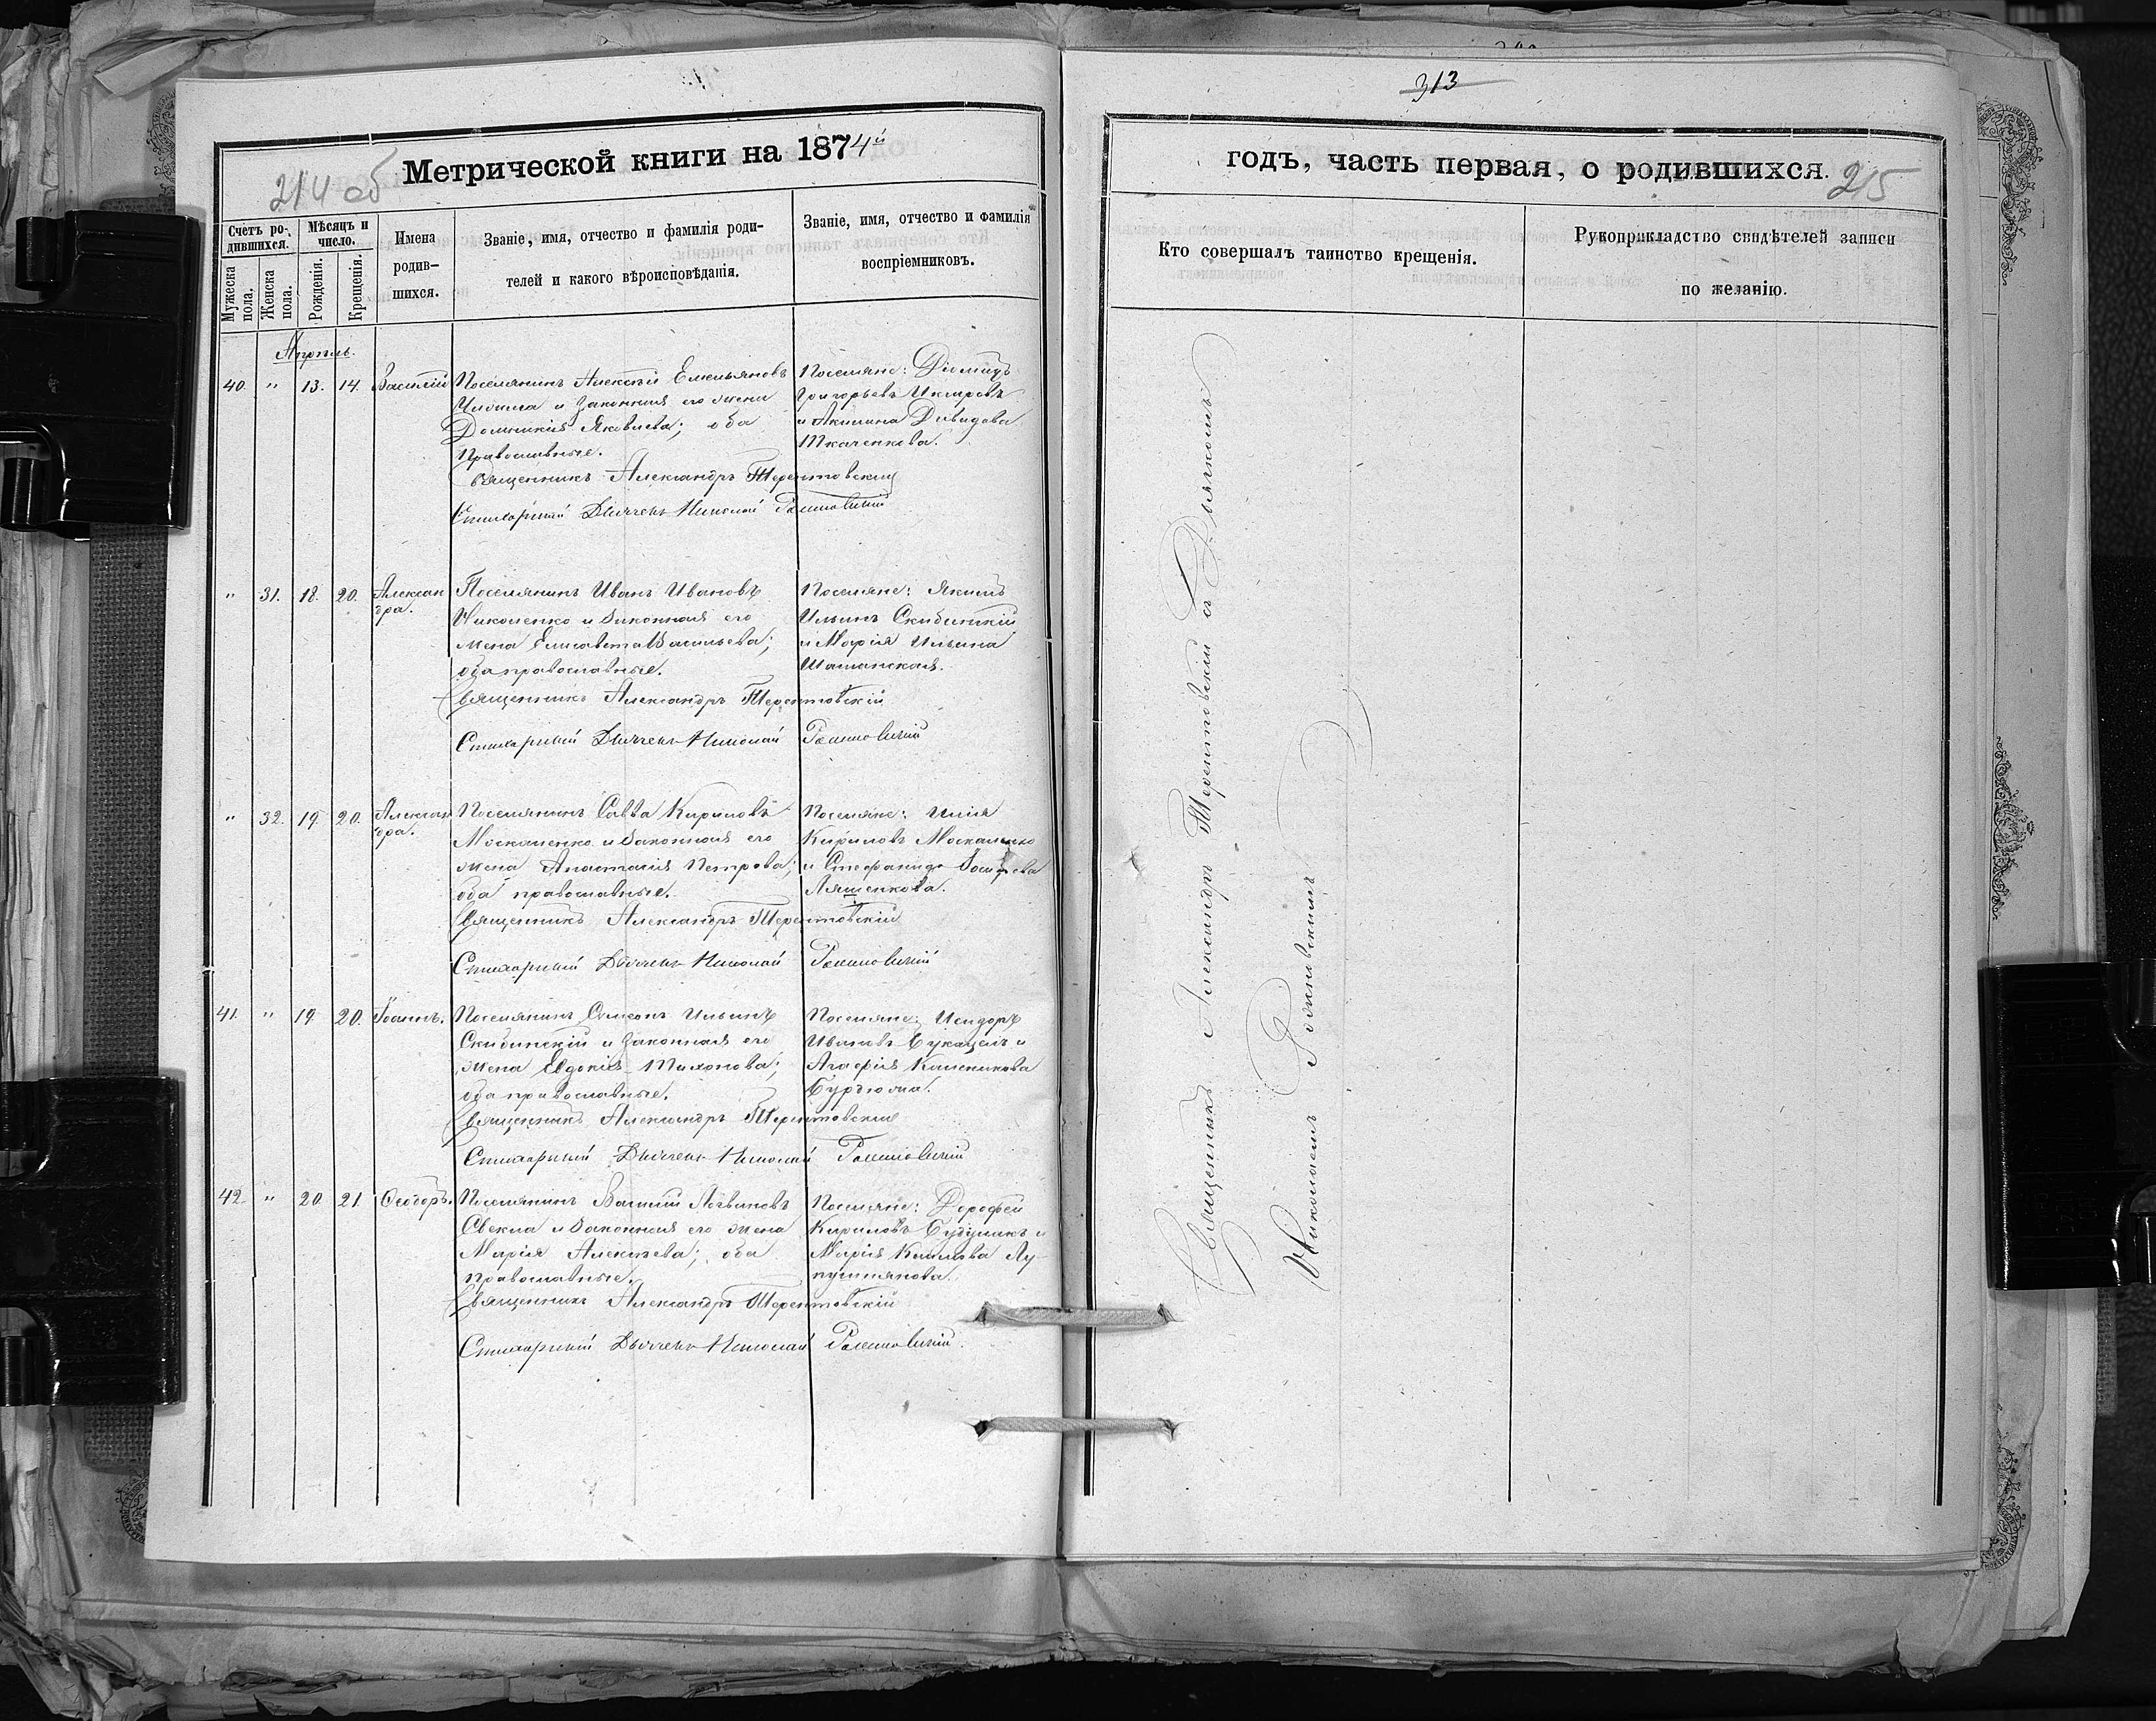 313
Метрической книги на 1874й
214 об
годъ, часть первая, о родившихся.
215
Счетъ ро-
дившихся.
Мѣсяцъ и
число.
Мужеска
пола.
Женска
пола.
Рожденія.
Крещенія.
Имена
родив-
шихся.
Званіе, имя, отчество и фамилія роди-
телей и какого вѣроисповѣданія.
Званіе, имя, отчество и фамилія
воспріемниковъ.
Кто совершалъ таинство крещенія.
Рукоприкладство свидѣтелей записи
по желанію.
Апрѣль.
40. " 13. 14. Василій
Поселянинъ Алексѣй Емельяновъ
и законная его жена
Домникія Яковлева; оба
православные.
Поселяне: Діомидъ
Григорьевъ
и Акилина Давидова
Ткаченкова.
Священникъ Александръ Терентовскій
Стихарный Дьячекъ Николай
" 31. 18. 20. Алексан
дра.
Поселянинъ Иванъ Ивановъ
Николенко и законная его
жена Елисавета Васильева;
оба православные.
Поселяне: Якимъ
Ильинъ Скибинскій
и Марія Ильина
Шаманская.
Священникъ Александръ Терентовскій
Стихарный Дьячекъ Николай
" 32. 19. 20. Алексан
дра.
Поселянинъ Савва Кириловъ
Москаленко и законная его
жена Анастасія Петрова;
оба православные.
Поселяне: Илія
Кириловъ Москаленко
и Стефанида
Ляшенкова.
Священникъ Александръ Терентовскій
Стихарный Дьячекъ Николай
41. " 19. 20. Іоаннъ.
Поселянинъ Симеонъ Ильинъ
Скибинскій и законная его
жена Евдокія Тихонова;
оба православные.
Поселяне: Исидоръ
Ивановъ и
Агафія Калиникова
Священникъ Александръ Терентовскій
Стихарный Дьячекъ Николай
42. " 20. 21. Ѳеодоръ.
Поселянинъ Василій Логвиновъ
Свекла и законная его жена
Марія Алексѣева; оба
православные.
Поселяне: Дорофей
Кириловъ и
Марія Лу-
Священникъ Александръ Терентовскій
Стихарный Дьячекъ Николай
Священникъ Александръ Терентовскій съ Дьячкомъ
Николаемъ